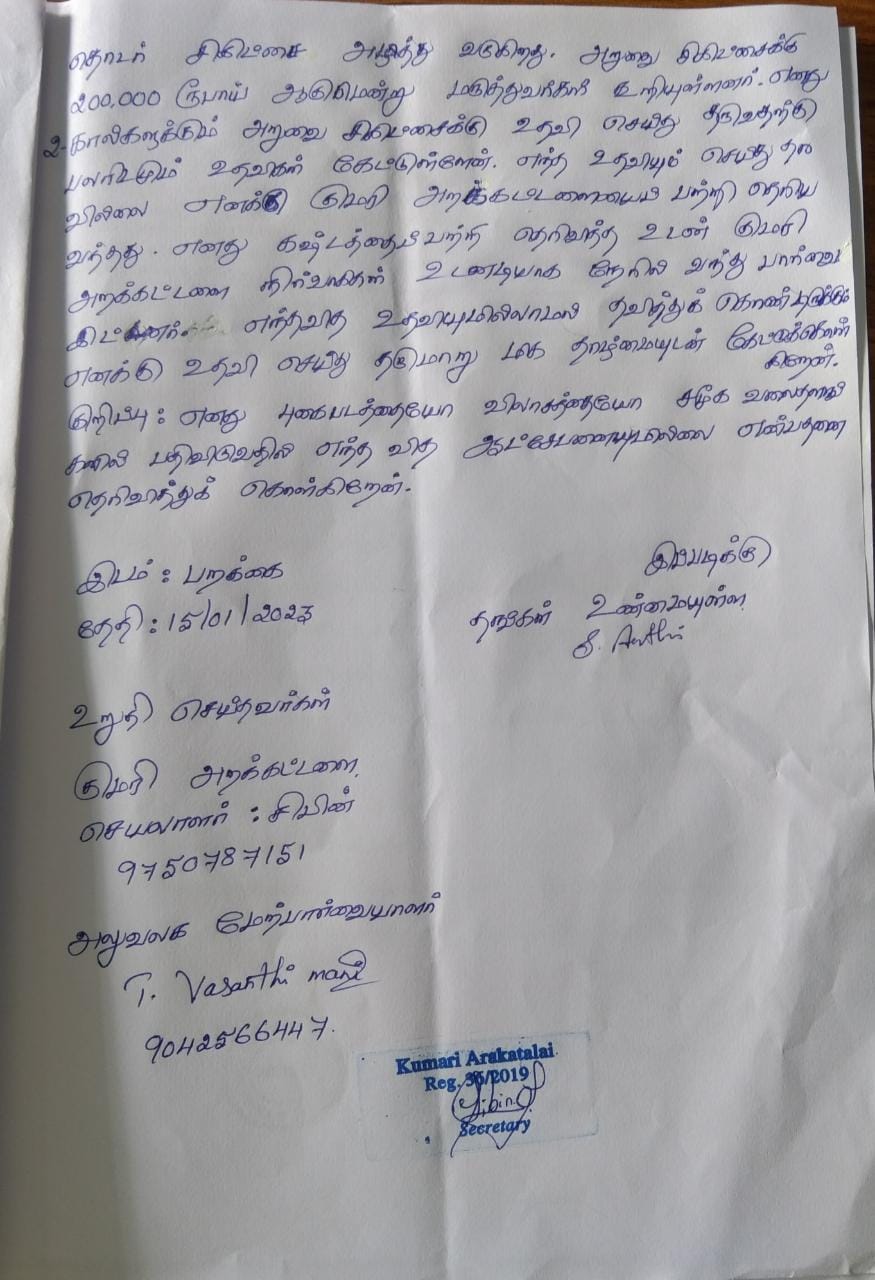 தொடர் சிகிட்சை அழித்து வருகிறது. அறுவை சிகிட்சைக்கு
200,000 ரூபாய் ஆகுமென்று மருத்துவர்கள் கூறியுள்ளனர். எனது
2-கால்களுக்கும் அறுவை சிகிட்சைக்கு உதவி செய்து தருவதற்கு
பலரிடமும் உதவிகள் கேட்டுள்ளேன். எந்த உதவியும் செய்து தர
வில்லை எனக்கு குமரி அறக்கட்டளையைப் பற்றி தெரிய
வந்தது. எனது கஷ்டத்தைப்பற்றி தெரிவித்த உடன் குமரி
அறக்கட்டளை நிர்வாகிகள் உடனடியாக நேரில் வந்து பார்வை
இட்டனர். எந்தவித உதவியுமில்லாமல் தவித்துக் கொண்டிருக்கும்
எனக்கு உதவி செய்து தருமாறு மிக தாழ்மையுடன் கேட்டுக்கொள்
கிறேன்.
குறிப்பு: எனது புகைபடத்தையோ விலாசத்தையோ சமூக வலைதளங்
களில் பதிவிடுவதில் எந்த வித ஆட்சேபணையுமில்லை என்பதனை
தெரிவித்துக் கொள்கிறேன்.
இடம் : பறக்கை
தேதி : 15/01/2023
இப்படிக்கு
தங்கள் உண்மையுள்ள
S. Anthi
உறுதி செய்தவர்கள்
குமரி அறக்கட்டளை
செயலாளர் : சிபின்
9750787151
அலுவலக மேற்பார்வையாளர்
T. Vasanthi mani
9042566447.
Kumari Arakatalai
Reg. 36/2019
Sibin
Secretary